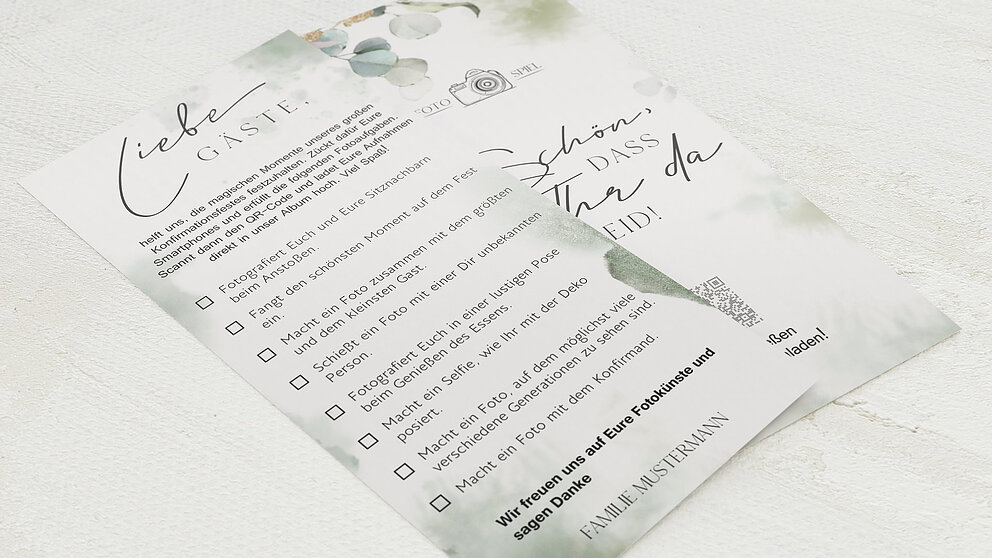 Liebe
GÄSTE,
helft uns, die magischen Momente unseres großen
Konfirmationsfestes festzuhalten. Zückt dafür Eure
Smartphones und erfüllt die folgenden Fotoaufgaben.
Scannt dann den QR-Code und ladet Eure Aufnahmen
direkt in unser Album hoch. Viel Spaß!
Fotografiert Euch und Eure Sitznachbarn
beim Anstoßen.
Fangt den schönsten Moment auf dem Fest
ein.
Macht ein Foto zusammen mit dem größten
und dem kleinsten Gast.
Schießt ein Foto mit einer Dir unbekannten
Person.
Fotografiert Euch in einer lustigen Pose
beim Genießen des Essens.
Macht ein Selfie, wie Ihr mit der Deko
posiert.
Macht ein Foto, auf dem möglichst viele
verschiedene Generationen zu sehen sind.
Macht ein Foto mit dem Konfirmand.
Wir freuen uns auf Eure Fotokünste und
sagen Danke
FAMILIE MUSTERMANN
OTO SPIEL
Schön,
DASS
Ihr da
EID!
ßen
laden!